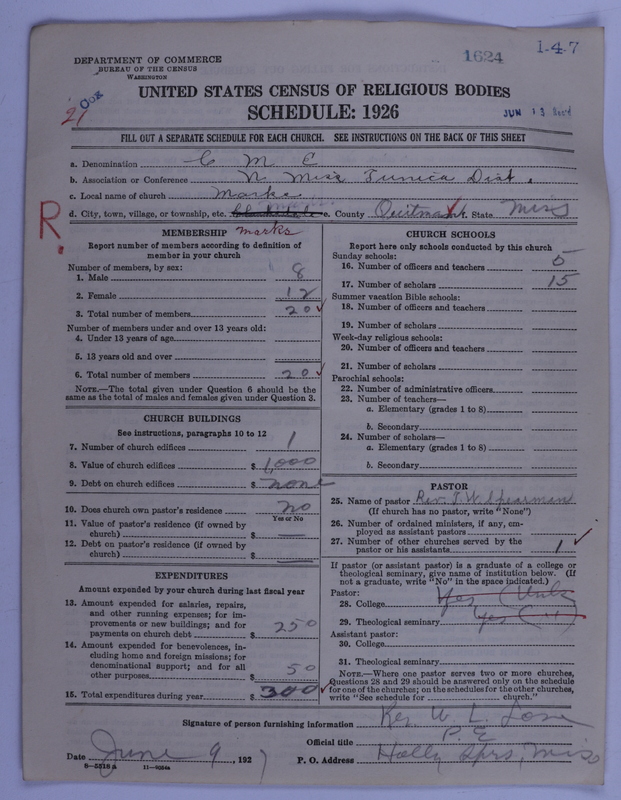 DEPARTMENT OF COMMERCE
BUREAU OF THE CENSUS
WASHINGTON
1624
1-47
UNITED STATES CENSUS OF RELIGIOUS BODIES
SCHEDULE: 1926
JUN 13 Rec'd
FILL OUT A SEPARATE SCHEDULE FOR EACH CHURCH. SEE INSTRUCTIONS ON THE BACK OF THIS SHEET
a. Denomination C M E
b. Association or Conference N. Miss Tunica Dist.
c. Local name of church Marks
d. City, town, village, or township, etc. e. County Quitman f. State Miss
R.
MEMBERSHIP Marks
Report number of members according to definition of
member in your church
Number of members, by sex:
1. Male 8
2. Female 12
3. Total number of members 20
Number of members under and over 13 years old:
4. Under 13 years of age
5. 13 years old and over
6. Total number of members 20
NOTE.—The total given under Question 6 should be
same as the total of males and females given under Question 3.
CHURCH BUILDINGS
See instructions, paragraphs 10 to 12
7. Number of church edifices 1
8. Value of church edifices $ 1,000
9. Debt on church edifices $ none
10. Does church own pastor's residence no
Yes or No
11. Value of pastor's residence (if owned by
church) $ —
12. Debt on pastor's residence (if owned by
church) $ —
EXPENDITURES
Amount expended by your church during last fiscal year
13. Amount expended for salaries, repairs,
and other running expenses; for im-
provements or new buildings; and for
payments on church debt $ 250
14. Amount expended for benevolences, in-
cluding home and foreign missions; for
denominational support; and for all
other purposes $ 50
15. Total expenditures during year $ 300
CHURCH SCHOOLS
Report here only schools conducted by this church
Sunday schools:
16. Number of officers and teachers 5
17. Number of scholars 15
Summer vacation Bible schools:
18. Number of officers and teachers
19. Number of scholars
Week-day religious schools:
20. Number of officers and teachers
21. Number of scholars
Parochial schools:
22. Number of administrative officers
23. Number of teachers—
a. Elementary (grades 1 to 8)
b. Secondary
24. Number of scholars—
a. Elementary (grades 1 to 8)
b. Secondary
PASTOR
25. Name of pastor Rev. J. W. Spearman
(If church has no pastor, write "None")
26. Number of ordained ministers, if any, em-
ployed as assistant pastors
27. Number of other churches served by the
pastor or his assistants 1
If pastor (or assistant pastor) is a graduate of a college or
theological seminary, give name of institution below. (If
not a graduate, write "No" in the space indicated.)
Pastor:
28. College Yes
29. Theological seminary Yes (")
Assistant pastor:
30. College
31. Theological seminary
NOTE.—Where one pastor serves two or more churches,
Questions 28 and 29 should be answered only on the schedule
for one of the churches; on the schedules for the other churches,
write "See schedule for church."
Signature of person furnishing information Rev W. L.
Official title P. E.
Date June 9, 1927 P. O. Address Holly Sprs, Miss
8-5518a 11-9054a